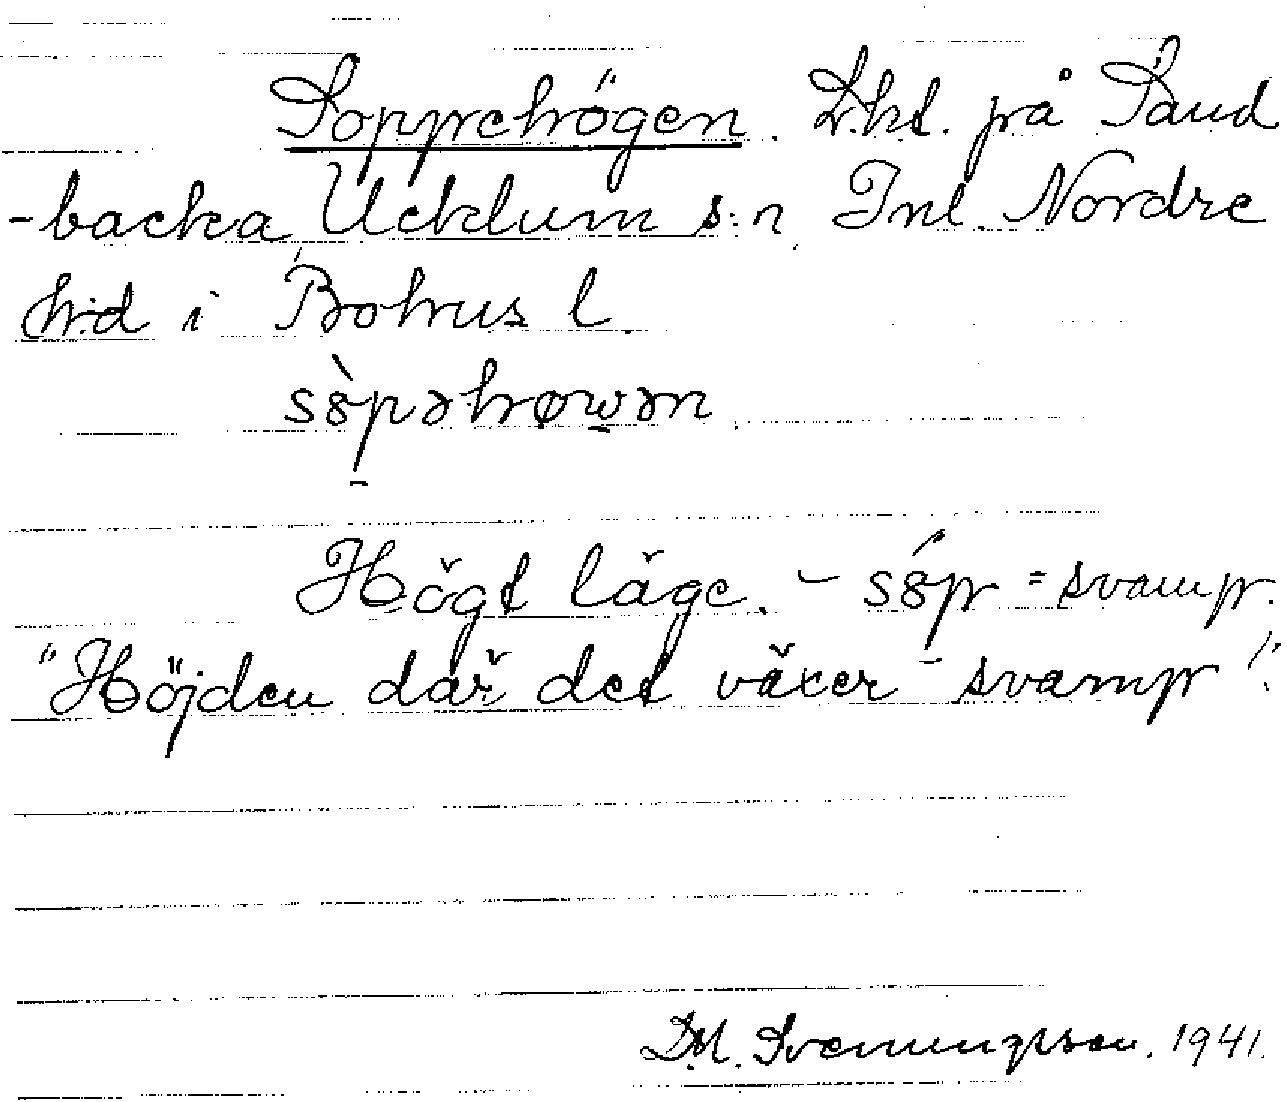 Soppehögen. Lht. på Sand
-backa Ucklum s:n Inl. Nordre
hd i Bohus l.
sòpəhøwən
Högt läge. - sóp = svamp.
"Höjden där det växer svamp".
Svenungsson. 1941.